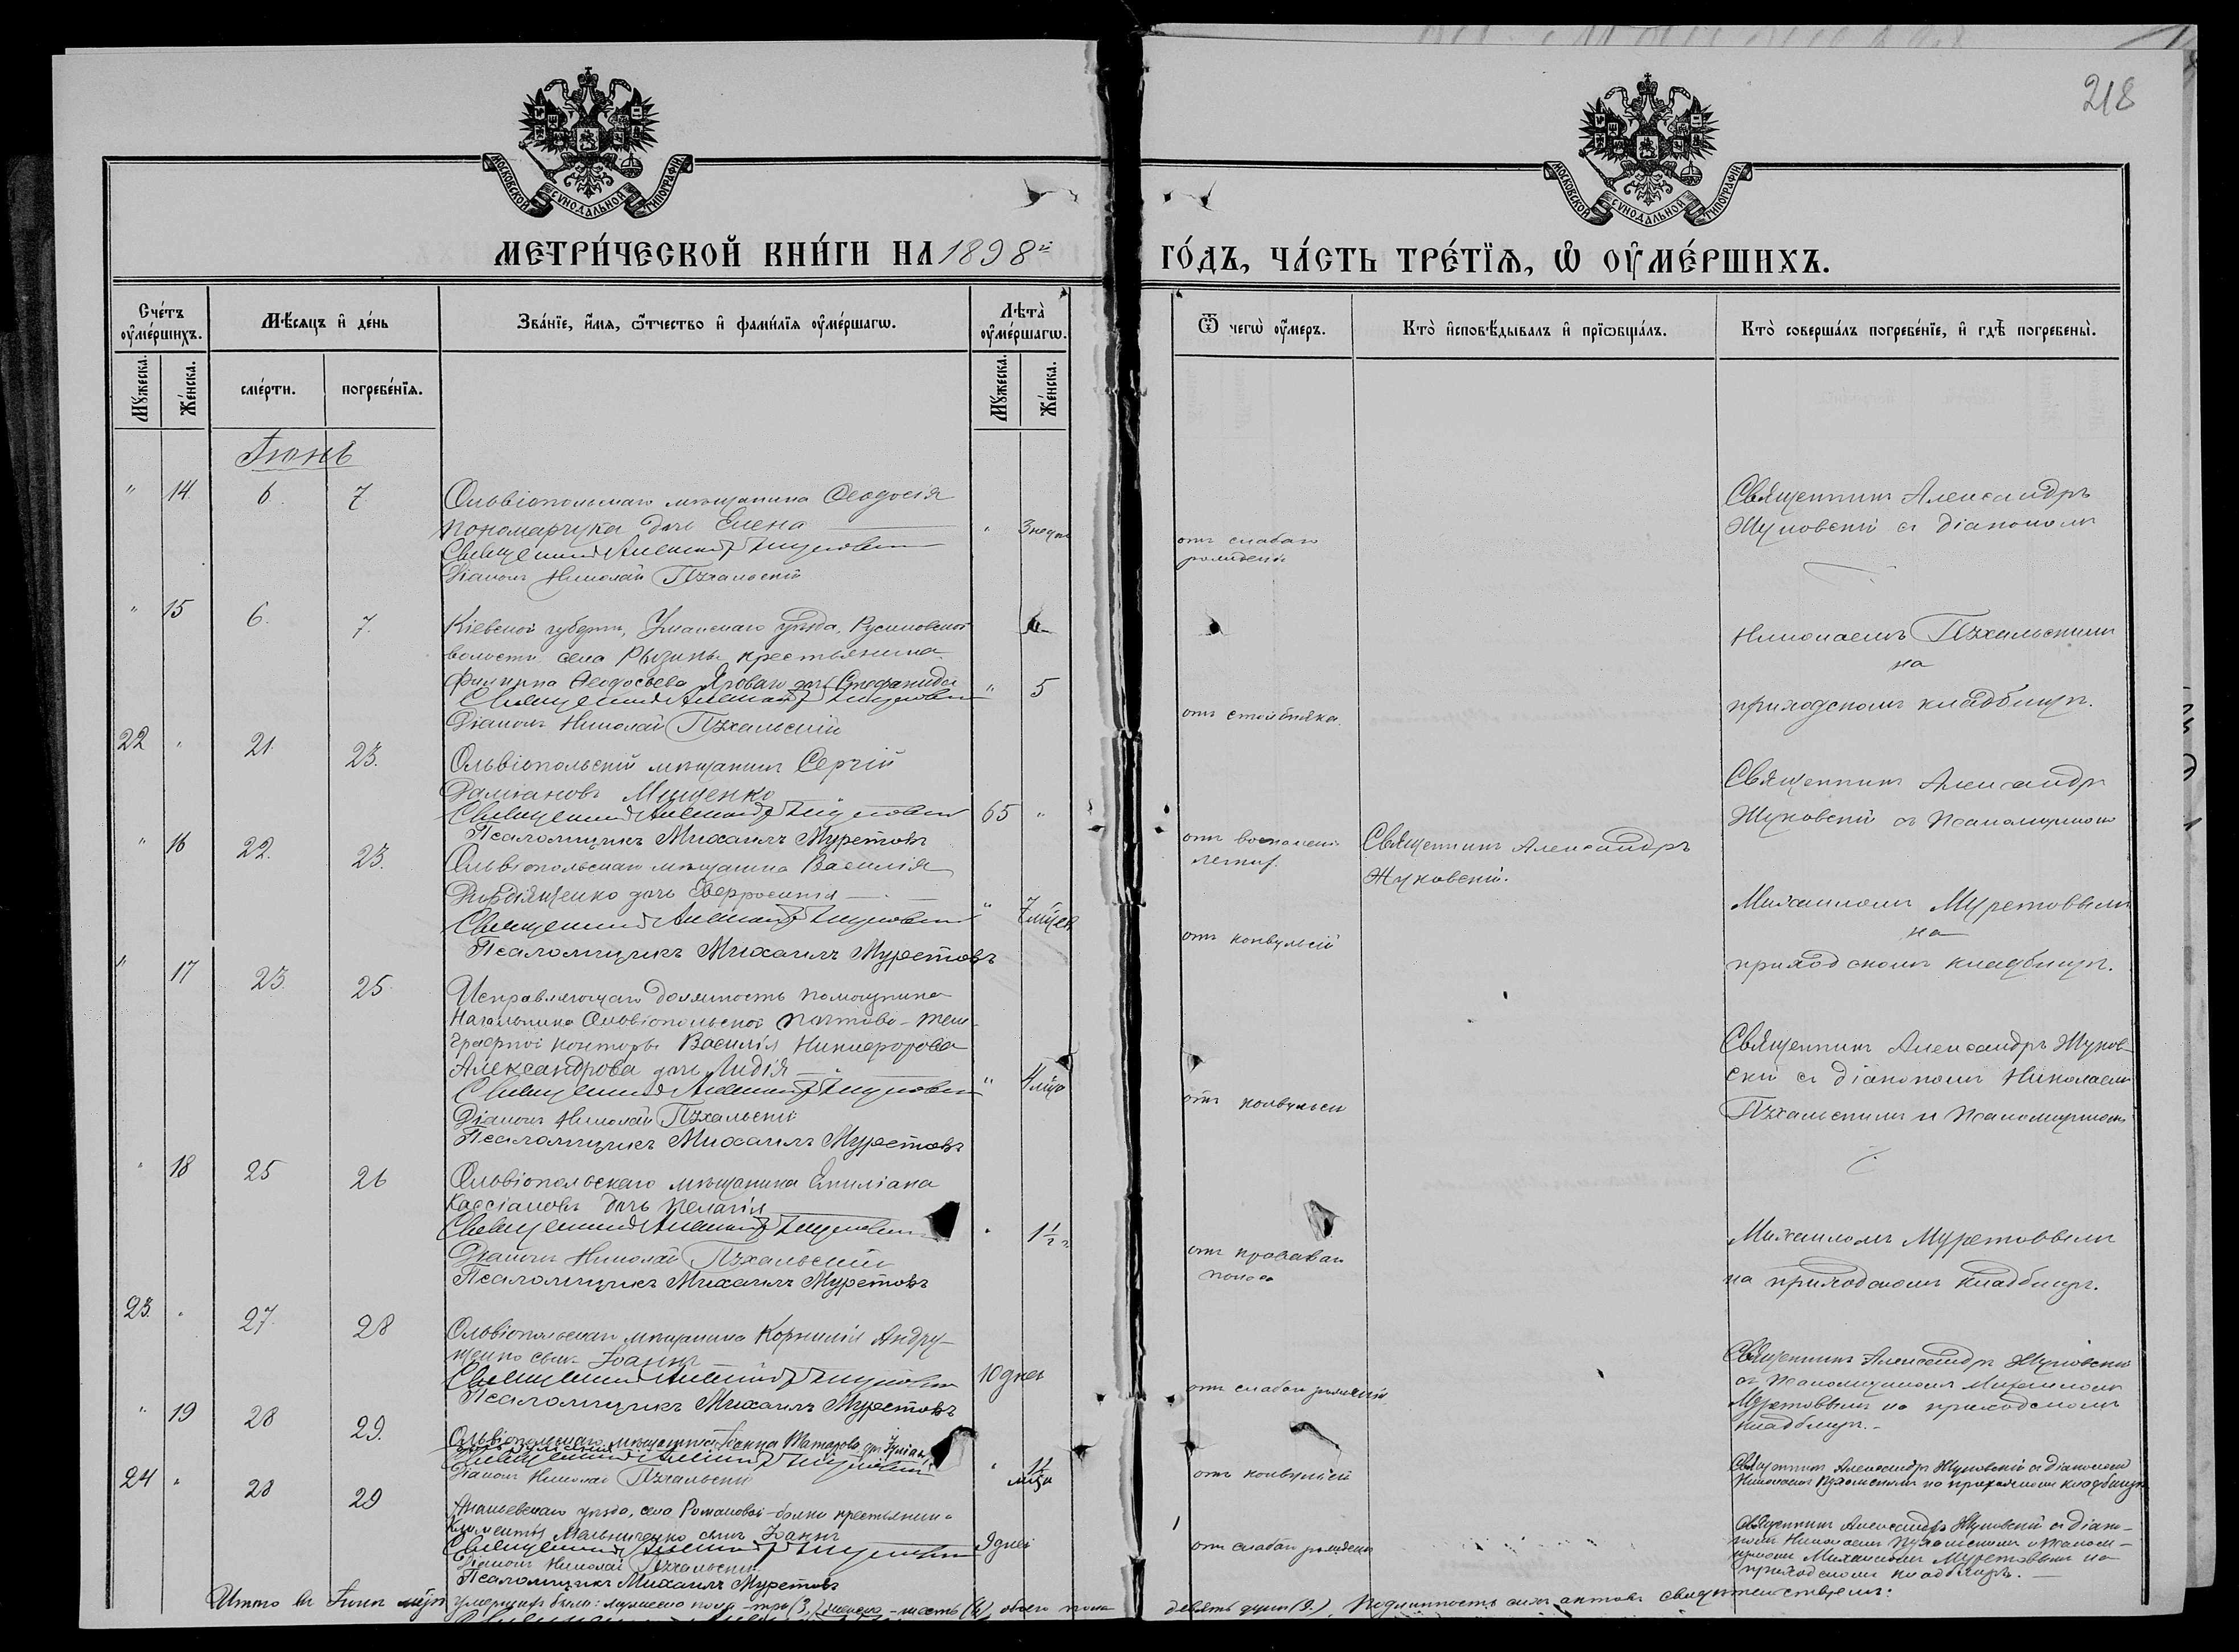 218
МОСКОВСКОЙ СУНОДАЛЬНОЙ ТИПОГРАФІИ
МОСКОВСКОЙ СУНОДАЛЬНОЙ ТИПОГРАФІИ
МЕТРИ́ЧЕСКОЙ КНИ́ГИ НА 1898й ГО́ДЪ, ЧА́СТЬ ТРЕ́ТЇѦ, Ѽ ОУМЕ́РШИХЪ.
Счетъ оумершихъ.
Мѣсяцъ и день
Званїе, имя, ѿтчество и фамилїя оумершагѡ.
Лѣта оумершагѡ.
Ѿ чегѡ оумеръ.
Кто исповѣдывалъ и прїѡбщалъ.
Кто совершалъ погребенїе, и гдѣ погребены.
Мужеска.
Женска.
смерти.
погребенїя.
Мужеска.
Женска.
Іюнь
" 14 6. 7.
Ольвіопольскаго мѣщанина Ѳеодосія
Пономарчука дочь Елена
" 3 недѣл
Священникъ Александръ Жуковскій
Діаконъ Николай Пухальскій
отъ слабаго
рожденія
Священникъ Александръ
Жуковскій съ діакономъ
" 15 6. 7.
Кіевской губерніи, Уманскаго уѣзда, Русиловской
волости села Рыжины крестьянина
Филиппа Ѳеодосьева Яроваго дочь Стефанида
" 5
Священникъ Александръ Жуковскій
Діаконъ Николай Пухальскій
отъ столбняка.
Николаемъ Пухальскимъ
на
приходскомъ кладбищѣ.
22 " 21. 23.
Ольвіопольскій мѣщанинъ Сергій
Даміановъ Мищенко
65 "
Священникъ Александръ Жуковскій
Псаломщикъ Михаилъ Муретовъ
отъ воспаленія
легких.
Священникъ Александръ
Жуковскій.
Священникъ Александръ
Жуковскій съ псаломщикомъ
" 16 22. 23.
Ольвіопольскаго мѣщанина Василія
дочь Евфросинія
" 7 мѣсяц
Священникъ Александръ Жуковскій
Псаломщикъ Михаилъ Муретовъ
отъ конвульсій
Михаиломъ Муретовымъ
на
приходскомъ кладбищѣ.
" 17 23. 25
Исправляющаго должность помощника
Начальника Ольвіопольской почтово-теле-
графной конторы Василія Никифорова
Александрова дочь Лидія
" 4 мѣся
Священникъ Александръ Жуковскій
Діаконъ Николай Пухальскій
Псаломщикъ Михаилъ Муретовъ
отъ конвульсіи
Священникъ Александръ Жуков-
скій съ діакономъ Николаемъ
Пухальскимъ и псаломщикомъ
" 18 25 26
Ольвіопольскаго мѣщанина Емиліана
Кассіановъ дочь Пелагія
" 1½ г
Священникъ Александръ Жуковскій
Діаконъ Николай Пухальскій
Псаломщикъ Михаилъ Муретовъ
отъ кроваваго
поноса
Михаиломъ Муретовымъ
на приходскомъ кладбищѣ.
23. " 27. 28
Ольвіопольскаго мѣщанина Корнилія Андру-
щенко сынъ Іоаннъ
10 дней
Священникъ Александръ Жуковскій
Псаломщикъ Михаилъ Муретовъ
отъ слабаго рожденія
Священникъ Александръ Жуковскій
съ псаломщикомъ Михаиломъ
Муретовымъ на приходскомъ
кладбищѣ.-
" 19 28 29.
Ольвіопольскаго мѣщанина
Священникъ Александръ Жуковскій
Діаконъ Николай Пухальскій
отъ конвульсій
Священникъ Александръ Жуковскій съ діакономъ
Николаемъ Пухальскимъ на приходскомъ кладбищѣ
24 " 28 29
Ананьевскаго уѣзда, села Романовой-балки крестьянина
Климентія Мельниченко сынъ Іоаннъ
9 дней
Священникъ Александръ Жуковскій
Діаконъ Николай Пухальскій
Псаломщикъ Михаилъ Муретовъ
отъ слабаго рожденія
Священникъ Александръ Жуковскій съ діако-
номъ Николаемъ Пухальскимъ и псалом-
щикомъ Михаиломъ Муретовымъ на
приходскомъ кладбищѣ.
Итого въ Іюнѣ мѣсяцѣ умершихъ было: мужеска пола-три (3,) женска-шесть (6), обоего пола девять душъ (9.) Подлинность сихъ актовъ свидѣтельствуемъ: